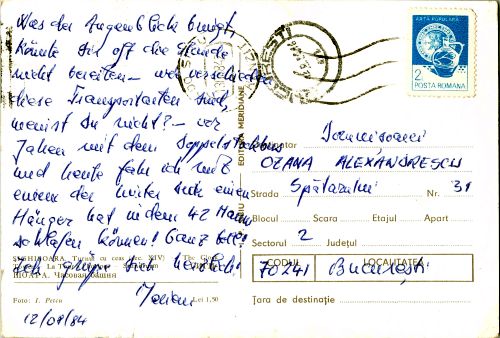 Was der Augenblick bringt
könnte Dir oft die Stunde
nicht bereiten – wie verschieden
diese Transportarten sind,
meinst Du nicht? – vor
Jahren mit dem Doppelstockbus
und heute fahr ich mit
einem der hinter sich einen
Hänger hat in dem 42 Mann
schlafen können! Ganz toll!
Ich grüße Dich herzlich!
12/09/84
SIGHIȘOARA. Turnul cu ceas (sec. XIV)
ШОАРА. Часовая башня
Foto: I. Petcu
Lei 1,50
EDITURA MERIDIANE
ARTA POPULARA
2
POSTA ROMANA
Domnișoarei
OZANA ALEXANDRESCU
Strada Spătarului Nr. 31
Blocul Scara Etajul Apart
Sectorul 2 Județul
CODUL LOCALITATEA
70241 București
Țara de destinație